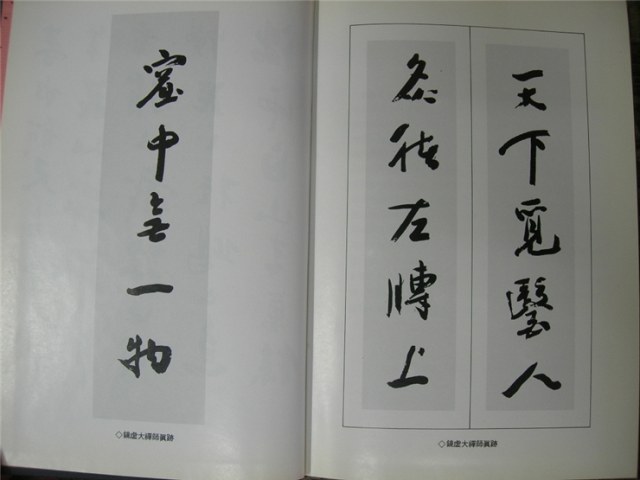 天下覓醫人
灸猪左膊上
◇鏡虛大禪師眞跡
中無一物
◇鏡虛大禪師眞跡